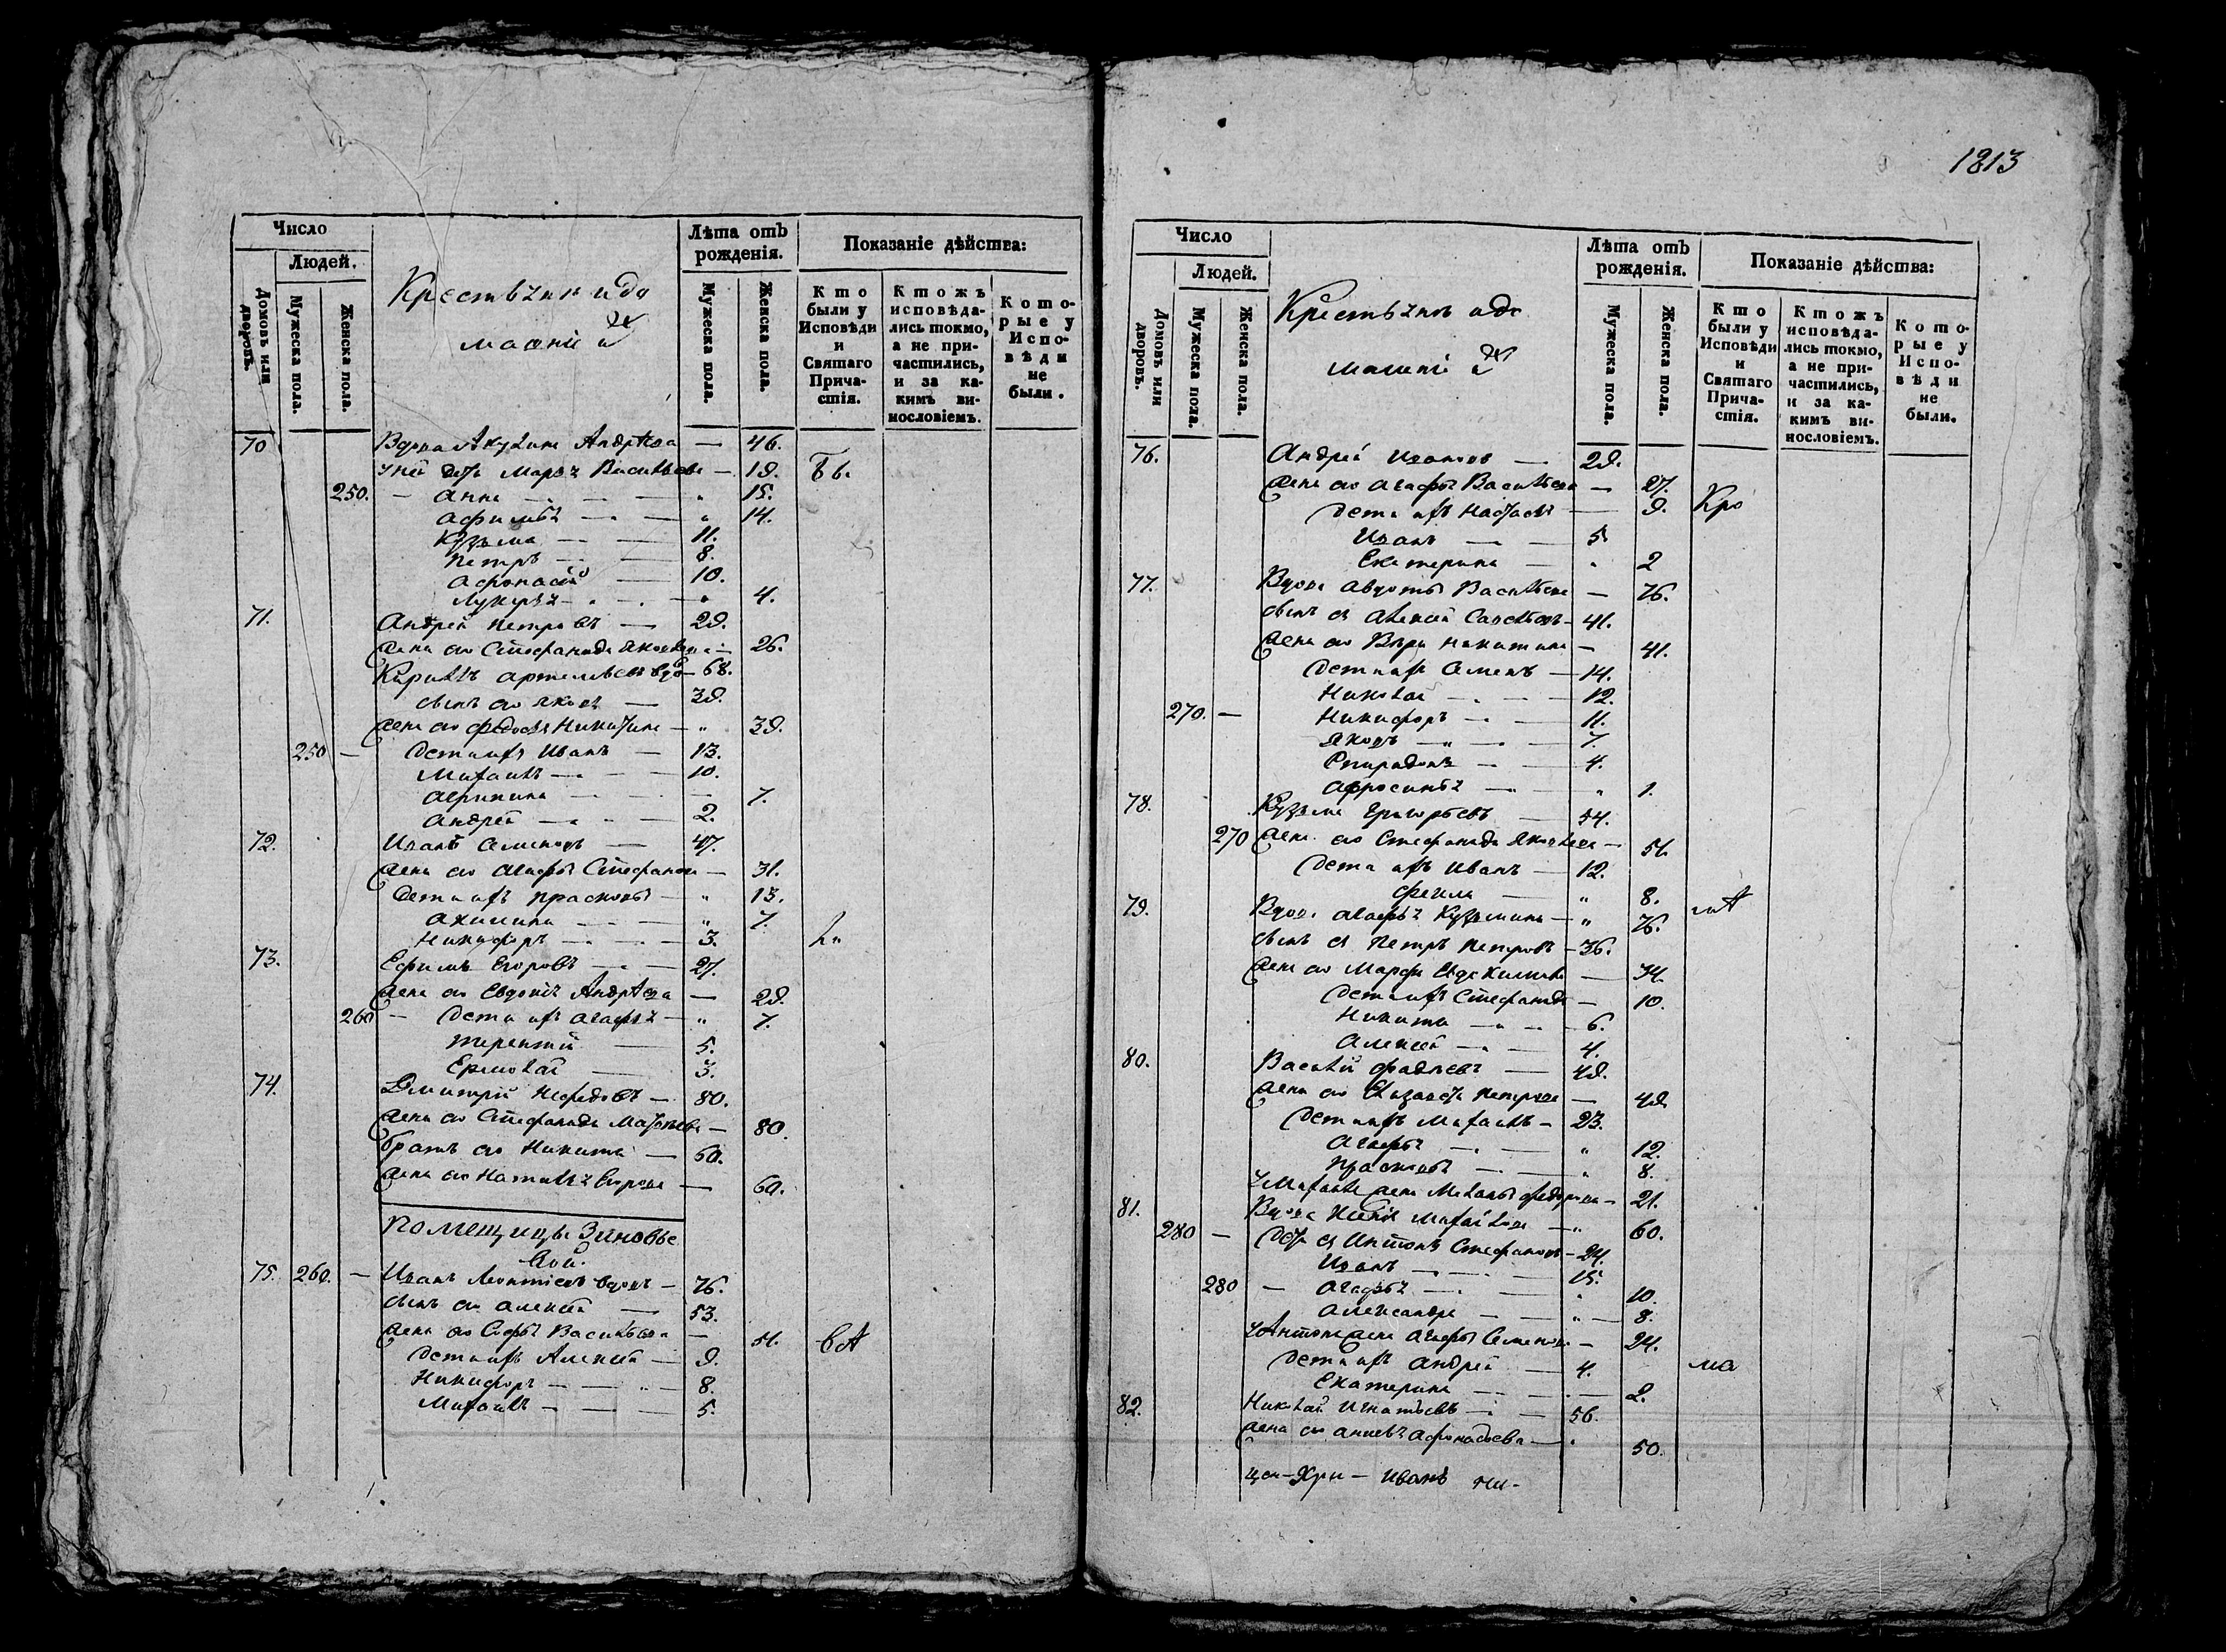 1813
Число
Людей.
Домовъ или дворовъ.
Мужеска пола.
Женска пола.
Крестьяне и до
машніе
Лѣта отъ рожденія.
Мужеска пола.
Женска пола.
Показаніе дѣйства:
Кто были у Исповѣди и Святаго Прича-стія.
Ктожъ исповѣда-лись токмо, а не при-частились, и за ка-кимъ ви-нословіемъ.
Кото-рые у Испо-вѣди не были.
70 Вдова Акулина Андрѣева — 46.
у ней дети Марья Васильева — 19. Бы
250. — Анна — 15.
Афимья — 14.
Кузьма — 11.
Петръ — 8.
Афонасій — 10.
Лукерья — 4.
71. Андрей Петровъ — 29.
жена его Стефанида Яковлева — 26.
Кирилъ Артемьевъ вдо — 68.
сынъ его Яковъ — 39.
жена его Федосья Никитина — 39.
250 — Дети ихъ Иванъ — 13.
Михаилъ — 10.
Агрипина — 7.
Андрей — 2.
72. Иванъ Семеновъ — 47.
жена его Агафья Стефанова — 31.
Дети ихъ Прасковья — 13.
Акилина — 7.
Никифоръ — 3. ли
73. Ефимъ Егоровъ — 27.
жена его Евдокія Андрѣева — 29.
260 — Дети ихъ Агафья — 7.
Терентій — 5.
Ермолай — 3.
74. Дмитрій Нефедовъ — 80.
жена его Стефанида Матвѣева — 80.
братъ его Никита — 60.
жена его Наталья Егорова — 60.
Помещицы Зиновье
вой.
75. 260. — Иванъ Леонтіевъ вдовъ — 76.
сынъ его Алексей — 53.
жена его Софья Васильева — 51. вА
Дети ихъ Алексей — 9.
Никифоръ — 8.
Михаилъ — 5.
Число
Людей.
Домовъ или дворовъ.
Мужеска пола.
Женска пола.
Крестьяне и до
машніе
Лѣта отъ рожденія.
Мужеска пола.
Женска пола.
Показаніе дѣйства:
Кто были у Исповѣди и Святаго Прича-стія.
Ктожъ исповѣда-лись токмо, а не при-частились, и за ка-кимъ ви-нословіемъ.
Кото-рые у Испо-вѣди не были.
76. Андрей Ивановъ — 29.
жена его Агафья Васильева — 27.
Дети ихъ Настасья — 9. Кро
Иванъ — 5
Екатерина — 2
77. Вдова Авдотья Васильева — 76.
сынъ ея Алексей Савельевъ — 41.
жена его Вѣра Никитина — 41.
Дети ихъ Семенъ — 14.
Николай — 12.
270. — Никифоръ — 11.
Яковъ — 7.
Спиридонъ — 4.
Афросинья — 1.
78. Кузьма Григорьевъ — 54.
270 жена его Стефанида Яковлева — 51.
Дети ихъ Иванъ — 12.
Фекла — 8.
79. Вдова Агафья Кузьмина — 76.
сынъ ея Петръ Петровъ — 36.
жена его Марфа Евдокимова — 34.
Дети ихъ Стефанида — 10.
Никита — 6.
Алексей — 4.
80. Василій Фадѣевъ — 49.
жена его Елизавета Петрова — 49
Дети ихъ Михаилъ — 23.
Агафья — 12.
Прасковья — 8.
у Михаила жена Меланья Федорова — 21.
81. Вдова Михайлова — 60.
280 — Дети ея Антонъ Стефановъ — 24.
Иванъ — 15.
280 — Агафья — 10.
Александра — 8.
у Антона жена Агафья Семенова — 24.
Дети ихъ Андрей — 4. ма
Екатерина — 2.
82. Николай Игнатьевъ — 56.
жена его Афонасьева — 50.
Иванъ Ни-